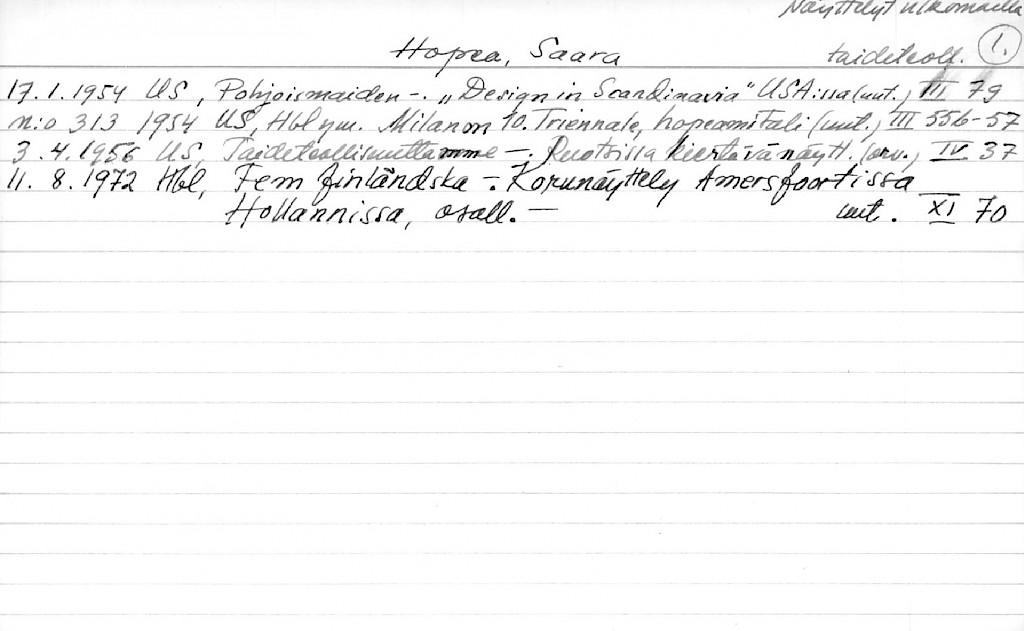 Näyttelyt ulkomailla
Hopea, Saara taideteoll. 1.
17.1.1954 US, Pohjoismaiden -. „Design in Scandinavia" USA:ssa (uut.) III 79
n:o 313 1954 US, Hbl ym. Milanon 10. Triennale, hopeamitali (uut.) III 556-57
3.4.1956 US, Taideteollisuuttamme -. Ruotsissa kiertävä näytt. (arv.) IV 37
11. 8. 1972 Hbl, Fem finländska -. Korunäyttely Amersfoortissa
Hollannissa, osall. — uut. XI 70